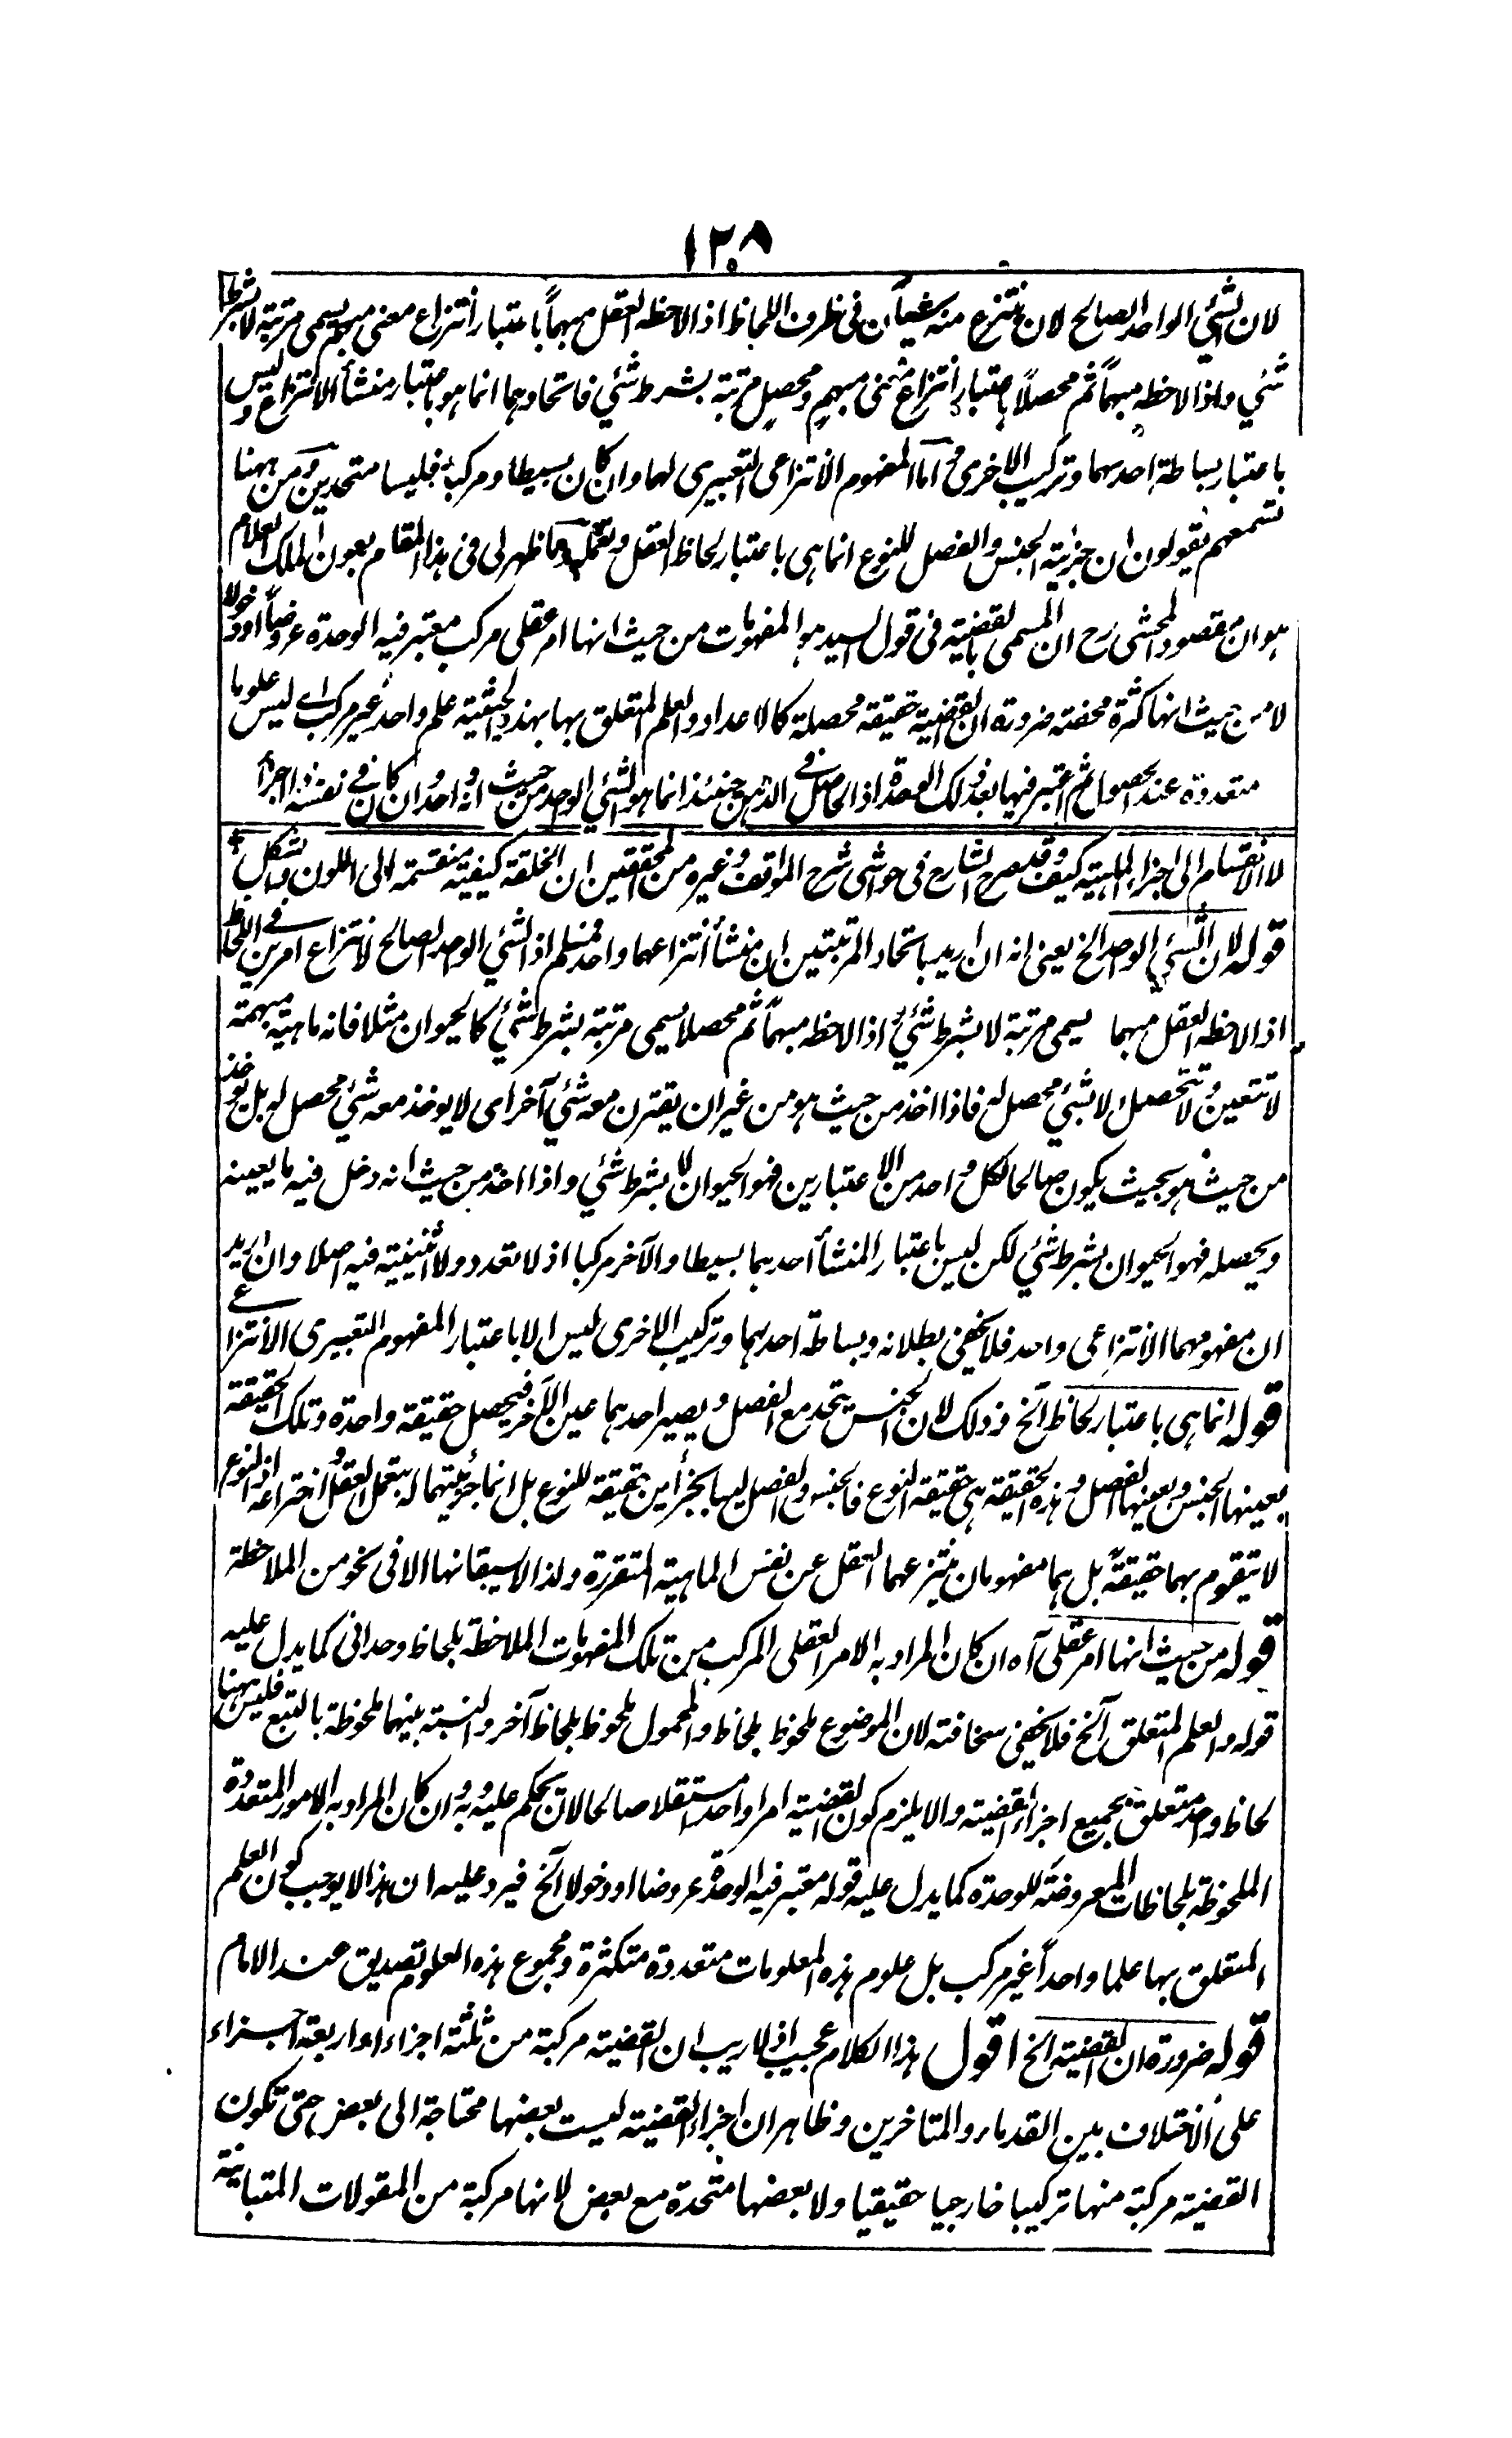 ١٢٨
لان الشئ الواحد الصالح لان ينتزع منه شيئان فى ظرف اللحاظ اذا لاحظه العقل مبهماً باعتبار انتزاع معنى مبهم يسمى مرتبة لا بشرط
شئ واذا لاحظه مبهماً ثم محصلاً باعتبار انتزاع معنى مبهم ومحصل مرتبة بشرط شئ فاتحادهما انما هو باعتبار منشأ الانتزاع وليس
باعتبار بساطة احدهما وتركيب الاخرى واما المفهوم الانتزاعى التعبيرى لهما وان كان بسيطا ومركباً فليسا متحدين ومن ههنا
تسمعهم يقولون ان جزئية الجنس والفصل للنوع انما هى باعتبار لحاظ العقل وتعمله وما ظهر لى فى هذا المقام بعون الملك العلام
هو ان مقصود المحشى رح ان المسمى بالقضية فى قول السيد هو المفهومات من حيث انها امر عقلى مركب معتبر فيه الوحدة عروضاً او دخولا
لا من حيث انها كثرة محضة ضرورة ان القضية حقيقة محصلة كالاعداد والعلم المتعلق بها بهذه الحيثية علم واحد غير مركب اے ليس علوما
متعددة عند الحصول ثم اعتبر فيها بعد ذلك الوحدة اذ الحاصل فے الذهن حينئذ انما هو الشئ الواحد من حيث انه واحد وان كان فے نفسه ذا اجزاء
لا الانقسام الى اجزاء الماهية كيف وقد صرح الشارح فى حواشى شرح المواقف وغيره من المحققين ان الخلقة كيفية منقسمة الى اللون والشكل
قوله لان الشئ الواحد الخ يعنى انه ان اريد باتحاد المرتبتين ان منشأ انتزاعهما واحد فمسلم اذ الشئ الواحد الصالح لانتزاع امرين فے اللحاظ
اذا لاحظه العقل مبهما يسمى مرتبة لا بشرط شئ واذا لاحظه مبهماً ثم محصلا يسمى مرتبة بشرط شئ كالحيوان مثلا فانه ماهية مبهمة
لا تتعين ولا تتحصل الا بشئ محصل له فاذا اخذ من حيث هو من غير ان يقترن معه شئ آخر اى لا يوخذ معه شئ محصل له بل يوخذ
من حيث هو بحيث يكون صالحا لكل واحد من الاعتبارين فهو الحيوان لا بشرط شئ واذا اخذ من حيث انه دخل فيه ما يعينه
ويحصله فهو الحيوان بشرط شئ لكن ليس باعتبار المنشأ احدهما بسيطا والآخر مركبا اذ لا تعدد ولا اثنينية فيه اصلا وان اريد
ان مفهومهما الانتزاعى واحد فلا يخفى بطلانه وبساطة احدهما وتركيب الاخرى ليس الا باعتبار المفهوم التعبيرى الانتزاعے
قوله انما هى باعتبار لحاظ آلخ وذلك لان الجنس يتحد مع الفصل ويصير احدهما عين الآخر فيحصل حقيقة واحدة وتلك الحقيقة
بعينها الجنس وبعينها الفصل وهذه الحقيقة هى حقيقة النوع فالجنس والفصل ليسا بجزأين حقيقة للنوع بل انما جزئيتهما له بتعمل العقل واختراعه اذ النوع
لا يتقوم بهما حقيقةً بل هما مفهومان ينتزعهما العقل عن نفس الماهية المتقررة ولذا لا يسبقانها الا فى نحو من الملاحظة
قوله من حيث انها امر عقلى آه ان كان المراد به الامر العقلى المركب من تلك المفهومات الملاحظة بلحاظ وحدانى كما يدل عليه
قوله والعلم المتعلق آلخ فلا يخفى سخافته لان الموضوع ملحوظ بلحاظ والمحمول ملحوظ بلحاظ آخر والنسبة بينهما ملحوظة بالتبع فليس ههنا
لحاظ واحد متعلق بجميع اجزاء القضية والا يلزم كون القضية امرا واحدا مستقلا صالحا لان يحكم عليه وبه وان كان المراد به الامور المتعددة
الملحوظة بلحاظات المعروضة للوحدة كما يدل عليه قوله معتبر فيه الوحدة عروضا او دخولا آلخ فيرد عليه ان هذا لا يوجب كون العلم
المتعلق بها علما واحداً غير مركب بل علوم هذه المعلومات متعددة متكثرة ومجموع هذه العلوم تصديق عند الامام
قوله ضرورة ان القضية الخ اقول هذا الكلام عجيب اذ لا ريب ان القضية مركبة من ثلثة اجزاء او اربعة اجزاء
على الاختلاف بين القدماء والمتاخرين وظاهر ان اجزاء القضية ليست بعضها محتاجة الى بعض حتى تكون
القضية مركبة منها تركيبا خارجيا حقيقيا ولا بعضها متحدة مع بعض لانها مركبة من المقولات المتباينة